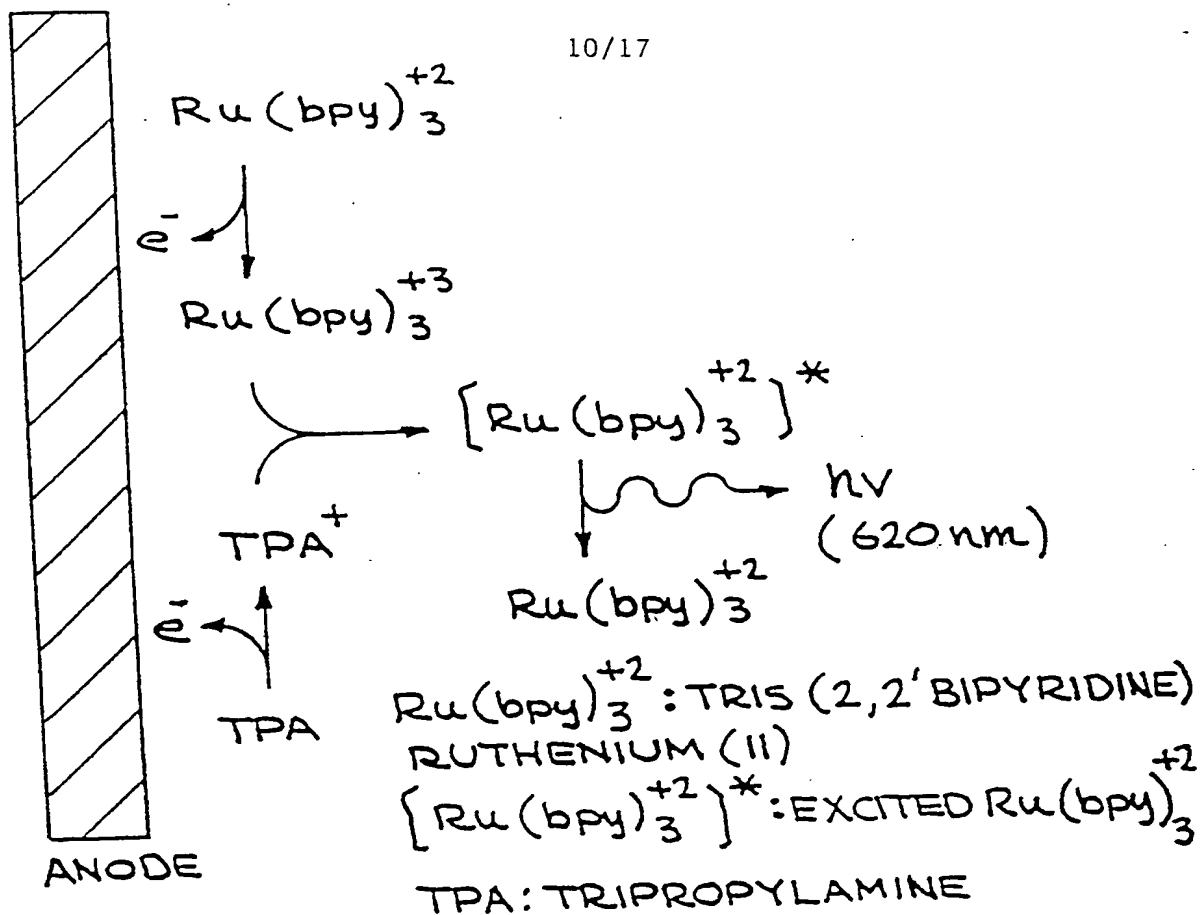 10/17
Ru(bpy)₃⁺²
e⁻
Ru(bpy)₃⁺³
[Ru(bpy)₃⁺²]*
hν
(620 nm)
TPA⁺
Ru(bpy)₃⁺²
e⁻
TPA
Ru(bpy)₃⁺²: TRIS (2,2' BIPYRIDINE)
RUTHENIUM (II)
[Ru(bpy)₃⁺²]*: EXCITED Ru(bpy)₃⁺²
ANODE
TPA: TRIPROPYLAMINE